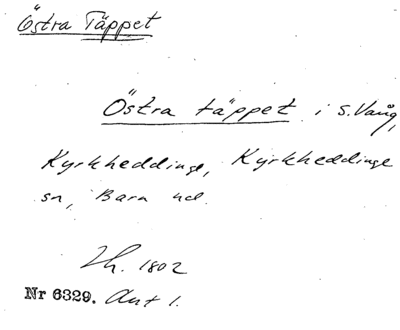 Östra Täppet
Östra täppet i S. Vång,
Kyrkheddinge, Kyrkheddinge
sn, Bara hd.
Lh. 1802
Nr 6329. Akt 1.